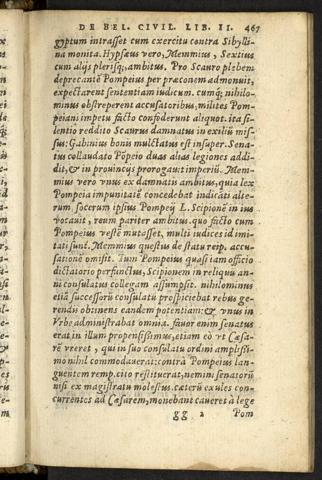 DE BEL. CIVIL. LIB. II. 467
gyptum intrasset cum exercitu contra Sibylli-
na monita. Hypsæus vero, Memmius, Sextius
cum alijs plerisq;, ambitus. Pro Scauro plebem
deprecantẽ Pompeius per præconem admonuit,
expectarent sententiam iudicum. cumq; nihilo-
minus obstreperent accusatoribus, milites Pom-
peiani impetu facto confoderunt aliquot. ita si-
lentio reddito Scaurus damnatus in exiliũ mis-
sus: Gabinius bonis mulctatus est insuper. Sena-
tus collaudato Põpeio duas alias legiones addi-
dit, & in prouincijs prorogauit imperiũ. Mem-
mius vero vnus ex damnatis ambitus, quia lex
Pompeia impunitatẽ concedebat indicãti alte-
rum, socerum ipsius Pompeij L. Scipionẽ in ius
vocauit, reum pariter ambitus. quo facto cum
Pompeius vestẽ mutasset, multi iudices id imi-
tati sunt. Memmius questus de statu reip. accu-
sationẽ omisit. Tum Pompeius quasi iam officio
dictatorio perfunctus, Scipionem in reliquũ an-
ni consulatus collegam assumpsit. nihilominus
etiã successorũ consulatu prospiciebat rebus ge-
rendis obtinens eandem potentiam: & vnus in
Vrbe administrabat omnia. fauor enim senatus
erat in illum propensissimus, etiam eò vt Cæsa-
rẽ vereret, qui in suo consulatu ordini amplissi-
mo nihil commodauerat: contrà Pompeius lan-
guentem remp. cito restituerat, nemini senatoriũ
nisi ex magistratu molestus. cæterũ exules con-
currentes ad Cæsarem, monebant caueret à lege
gg 2 Pom